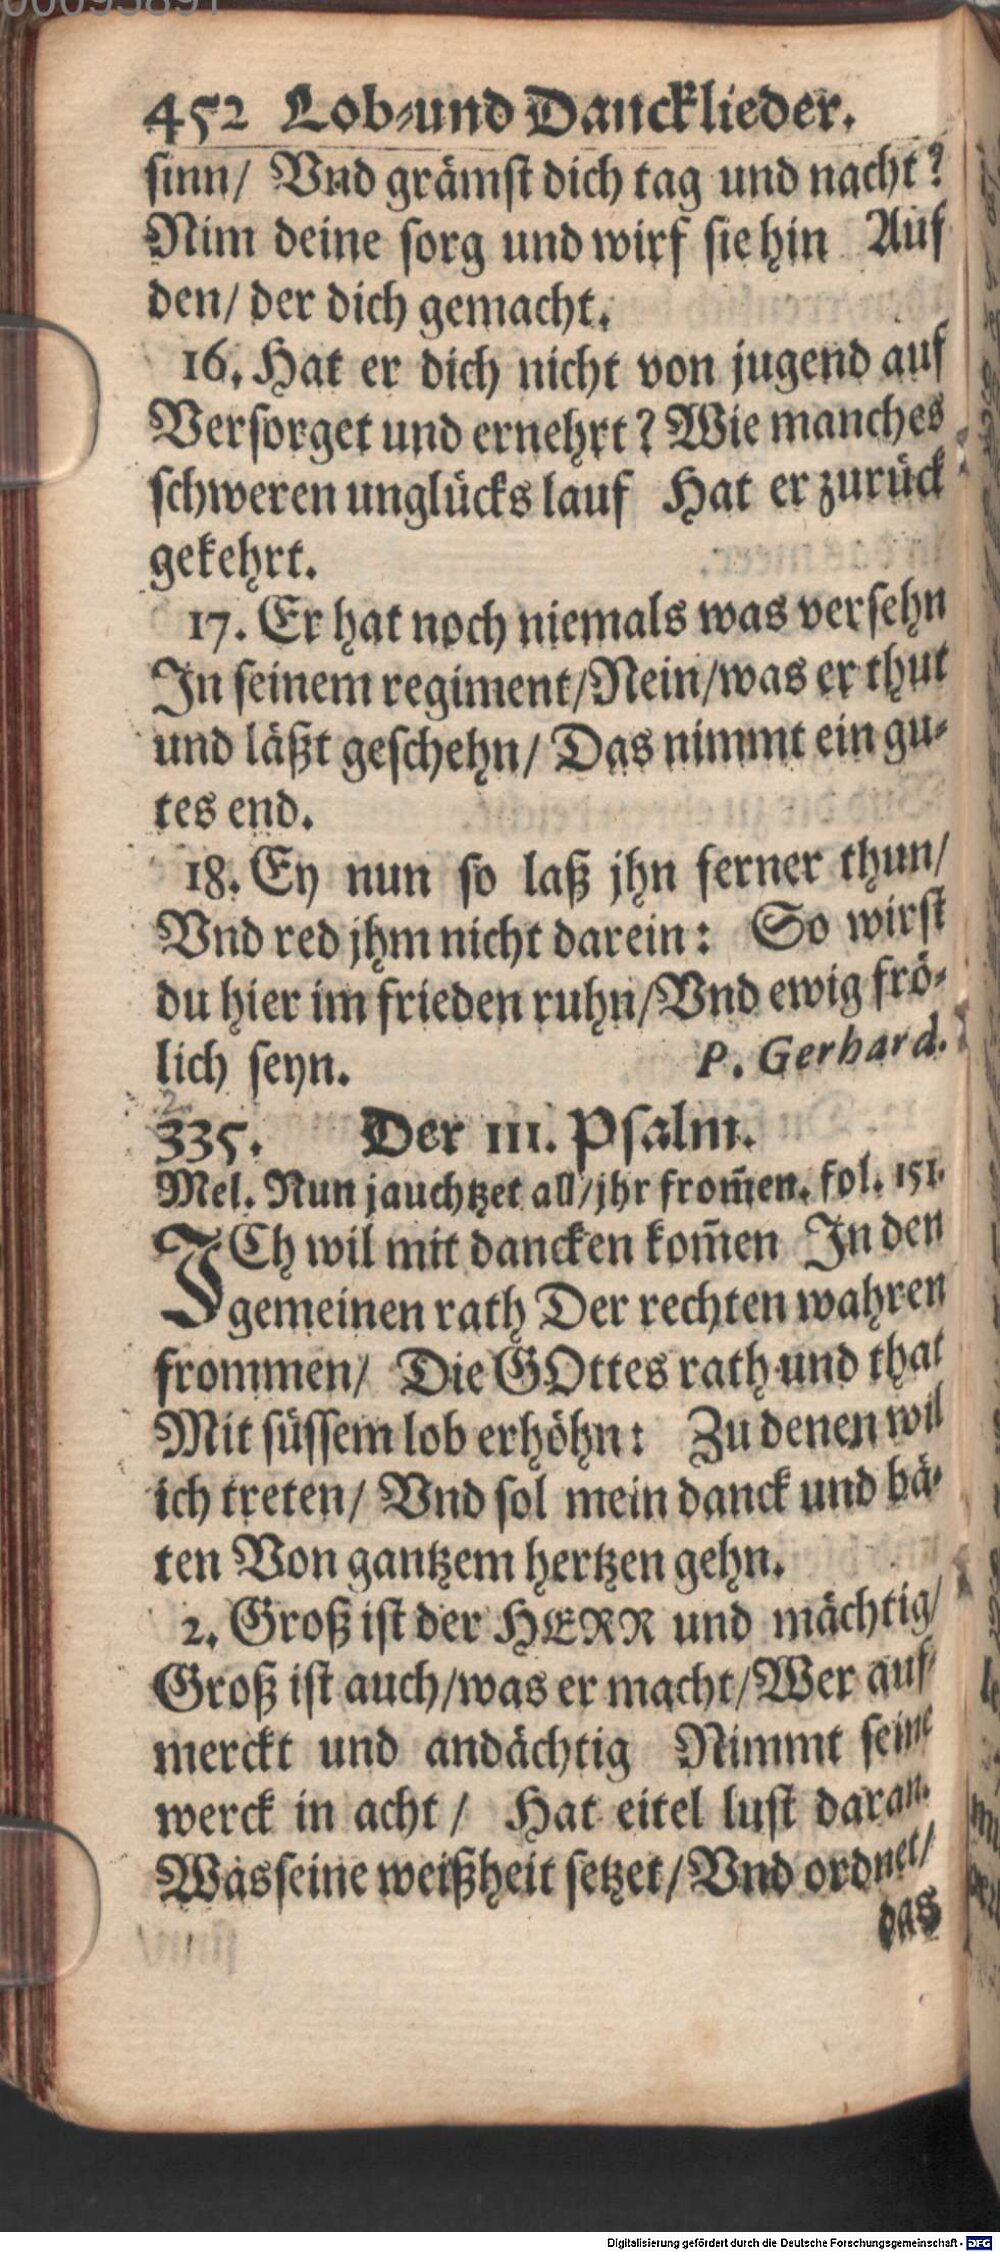 452 Lob-und Dancklieder.
sinn/ Vnd grämst dich tag und nacht?
Nim deine sorg und wirf sie hin Auf
den/ der dich gemacht.
16. Hat er dich nicht von jugend auf
Versorget und ernehrt? Wie manches
schweren unglücks lauf Hat er zurück
gekehrt.
17. Er hat noch niemals was versehn
In seinem regiment/Nein/was er thut
und läßt geschehn/ Das nimmt ein gu-
tes end.
18. Ey nun so laß jhn ferner thun/
Vnd red jhm nicht darein: So wirst
du hier im frieden ruhn/Vnd ewig frö-
lich seyn. P. Gerhard.
335. Der III. Psalm.
Mel. Nun jauchtzet all/jhr from̃en. fol. 151.
ICh wil mit dancken kom̃en In den
gemeinen rath Der rechten wahren
frommen/ Die GOttes rath und that
Mit süssem lob erhöhn: Zu denen wil
ich treten/ Vnd sol mein danck und bä-
ten Von gantzem hertzen gehn.
2. Groß ist der HERR und mächtig/
Groß ist auch/was er macht/Wer auf-
merckt und andächtig Nimmt seine
werck in acht/ Hat eitel lust daran.
Was seine weißheit setzet/Vnd ordnet/
das
Digitalisierung gefördert durch die Deutsche Forschungsgemeinschaft - DFG